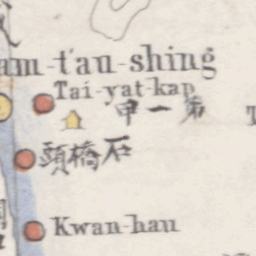 am-t'au-shing
Tai-yat-kap
第一甲
石橋頭
Kwan-hau